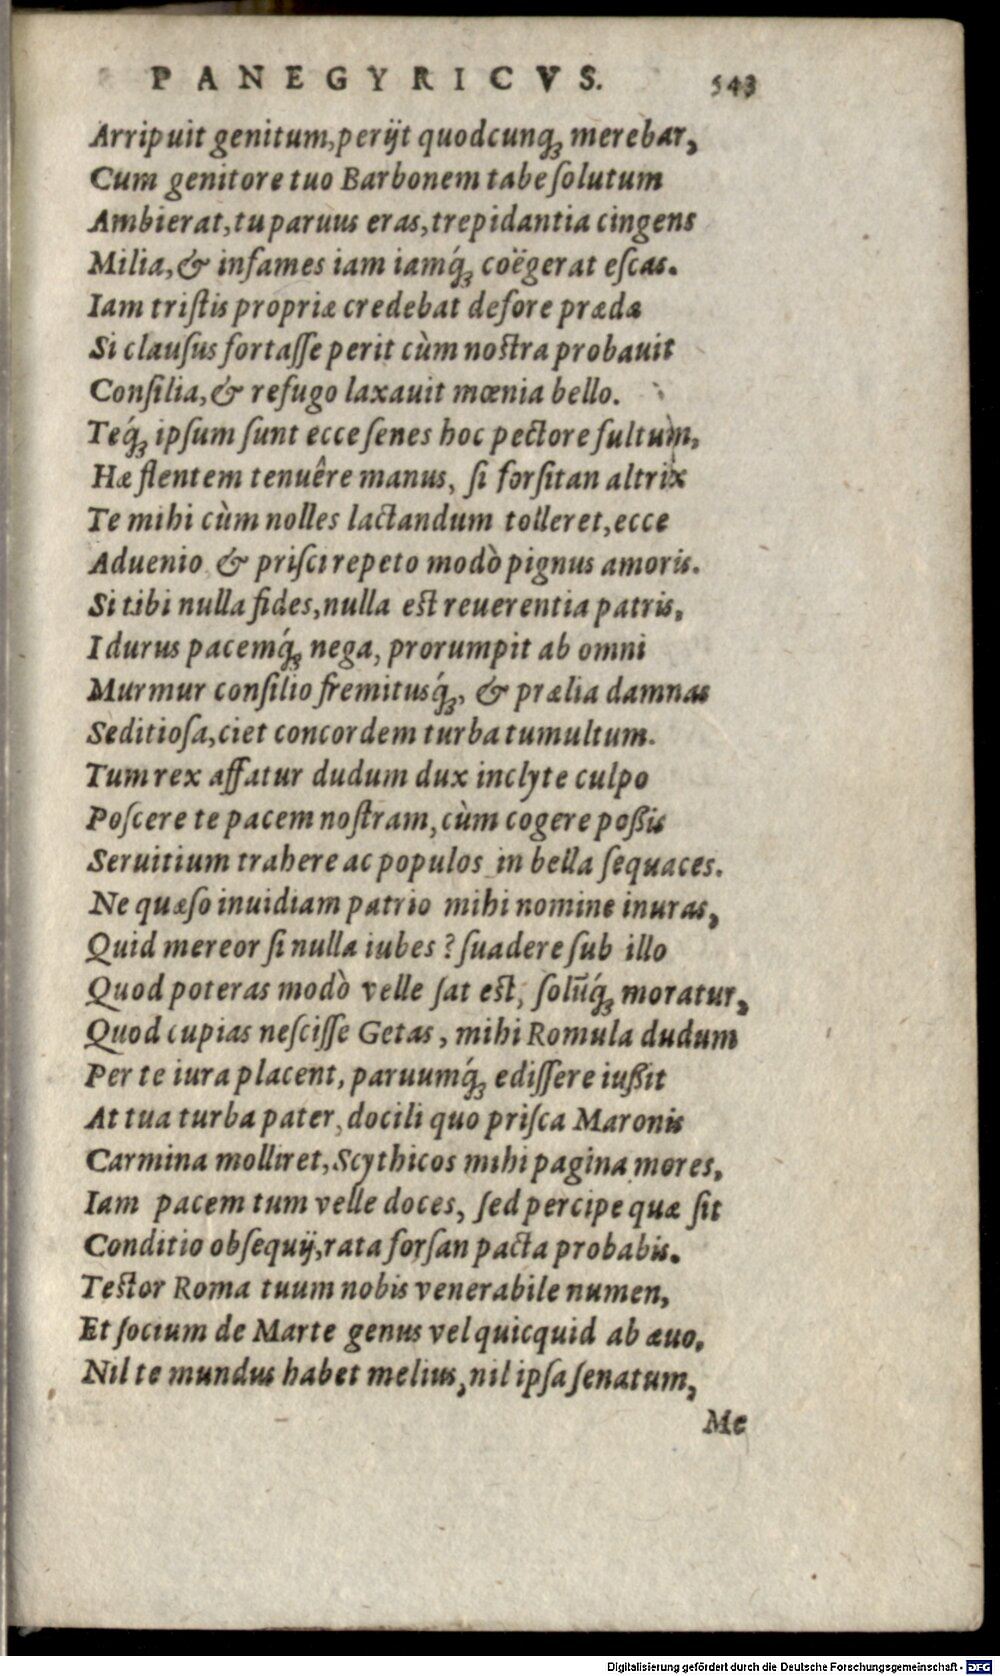 PANEGYRICVS. 543
Arripuit genitum, perijt quodcunq; merebar,
Cum genitore tuo Barbonem tabe ſolutum
Ambierat, tu paruus eras, trepidantia cingens
Milia, & infames iam iamq́; coëgerat eſcas.
Iam triſtis propriæ credebat defore prædæ
Si clauſus fortaſſe perit cùm noſtra probauit
Conſilia, & refugo laxauit mœnia bello.
Teq́; ipſum ſunt ecce ſenes hoc pectore fultum,
Hæ flentem tenuêre manus, ſi forſitan altrix
Te mihi cùm nolles lactandum tolleret, ecce
Aduenio & priſci repeto modò pignus amoris.
Si tibi nulla fides, nulla eſt reuerentia patris,
I durus pacemq́; nega, prorumpit ab omni
Murmur conſilio fremitusq́;, & prælia damnas
Seditioſa, ciet concordem turba tumultum.
Tum rex affatur dudum dux inclyte culpo
Poſcere te pacem noſtram, cùm cogere poßis
Seruitium trahere ac populos in bella ſequaces.
Ne quæſo inuidiam patrio mihi nomine inuras,
Quid mereor ſi nulla iubes? ſuadere ſub illo
Quod poteras modò velle ſat eſt, ſolūq́; moratur,
Quod cupias neſciſſe Getas, mihi Romula dudum
Per te iura placent, paruumq́; ediſſere iußit
At tua turba pater, docili quo priſca Maronis
Carmina molliret, Scythicos mihi pagina mores,
Iam pacem tum velle doces, ſed percipe quæ ſit
Conditio obſequij, rata forſan pacta probabis.
Teſtor Roma tuum nobis venerabile numen,
Et ſocium de Marte genus vel quicquid ab æuo,
Nil te mundus habet melius, nil ipſa ſenatum,
Me
Digitalisierung gefördert durch die Deutsche Forschungsgemeinschaft - DFG